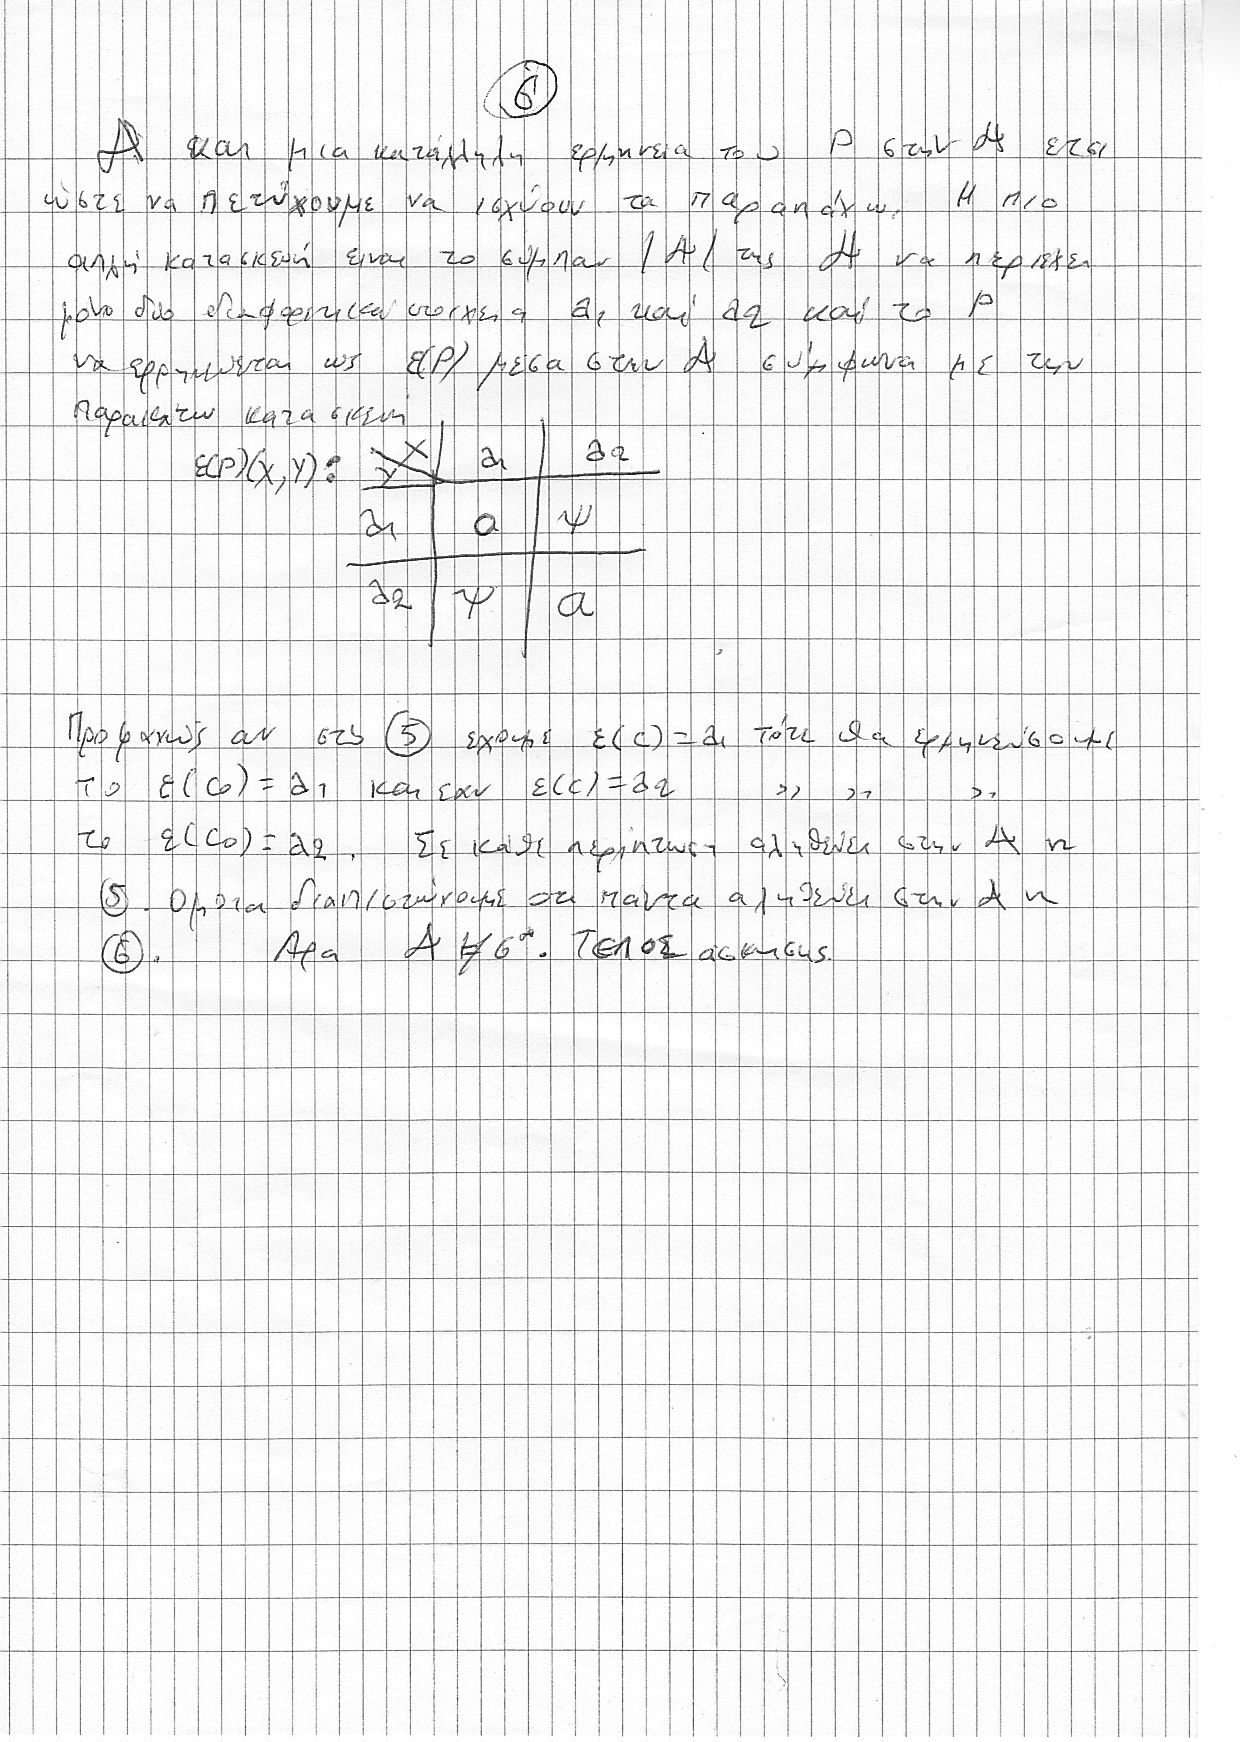 6
A και μια κατάλληλη ερμηνεια του P στην A ετσι
ώστε να πετύχουμε να ισχύουν τα παραπάνω. Η πιο
απλή κατασκευή ειναι το σύμπαν |A| της A να περιεχει
μόνο δύο διαφορετικά στοιχεια a1 και a2 και το P
να ερμηνεύεται ως ε(P) μεσα στην A σύμφωνα με την
παρακατω κατασκευή
ε(P)(X,Y): X Y a1 a2
a1 α ψ
a2 ψ α
Προφανώς αν στη 5 εχουμε ε(c)=a1 τότε θα ερμηνεύσουμε
το ε(c0)=a1 και εαν ε(c)=a2 ,, ,, ,,
το ε(c0)=a2. Σε κάθε περίπτωση αληθεύει στην A η
5. Ομοια διαπιστώνουμε οτι παντα αληθεύει στην A η
6. Αρα A ⊭ σ*. ΤΕΛΟΣ ασκησης.